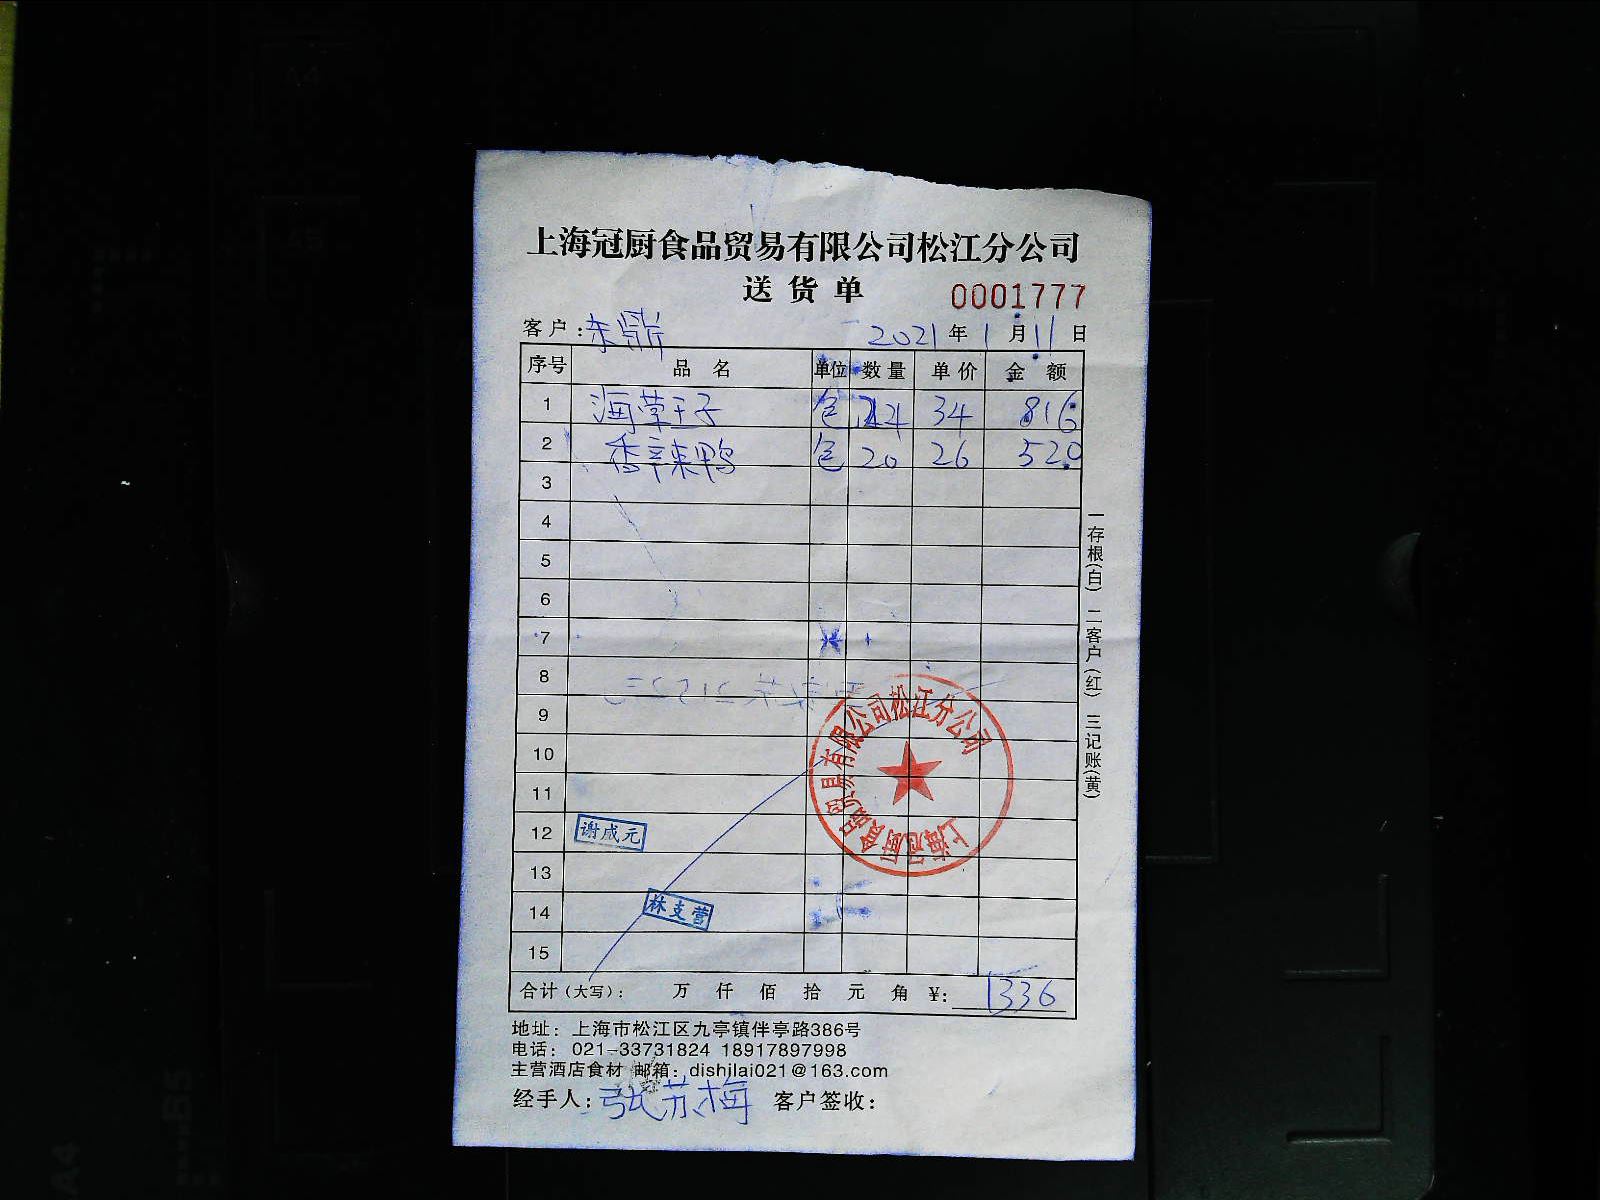 上海冠厨食品贸易有限公司松江分公司
送货单
0001777
客户:东鼎 2021年1月11日
序号 品名 单位 数量 单价 金额
1 海草王子 包 24 34 816
2 香辣鸭 包 20 26 520
3
4
5
6
7
8
9
10
11
12 谢成元
13
14 林支营
15
合计(大写): 万 仟 佰 拾 元 角 ¥: 1336
地址: 上海市松江区九亭镇伴亭路386号
电话: 021-33731824 18917897998
主营酒店食材 邮箱: dishilai021@163.com
经手人: 张苏梅 客户签收:
一存根(白) 二客户(红) 三记账(黄)
上海冠厨食品贸易有限公司松江分公司
A4
A5
A4